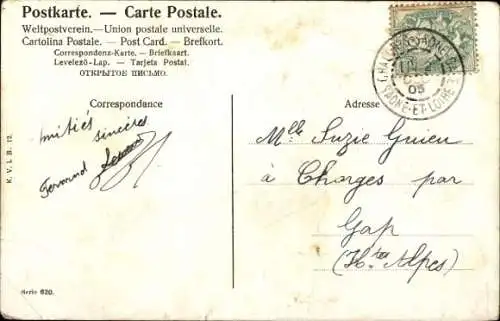 Postkarte. — Carte Postale.
Weltpostverein.—Union postale universelle.
Cartolina Postale. — Post Card. — Brefkort.
Correspondenz-Karte. — Briefkaart.
Levelező-Lap. — Tarjeta Postal.
ОТКРЫТОЕ ПИСЬМО.
Correspondance
Adresse
CHALON-S-SAONE
05
SAONE-ET-LOIRE
Amitiés
sincères
Fernand
Mlle Suzie Guieu
à Chorges par
Gap
(Htes Alpes)
K. V. i. B. 12.
Serie 620.